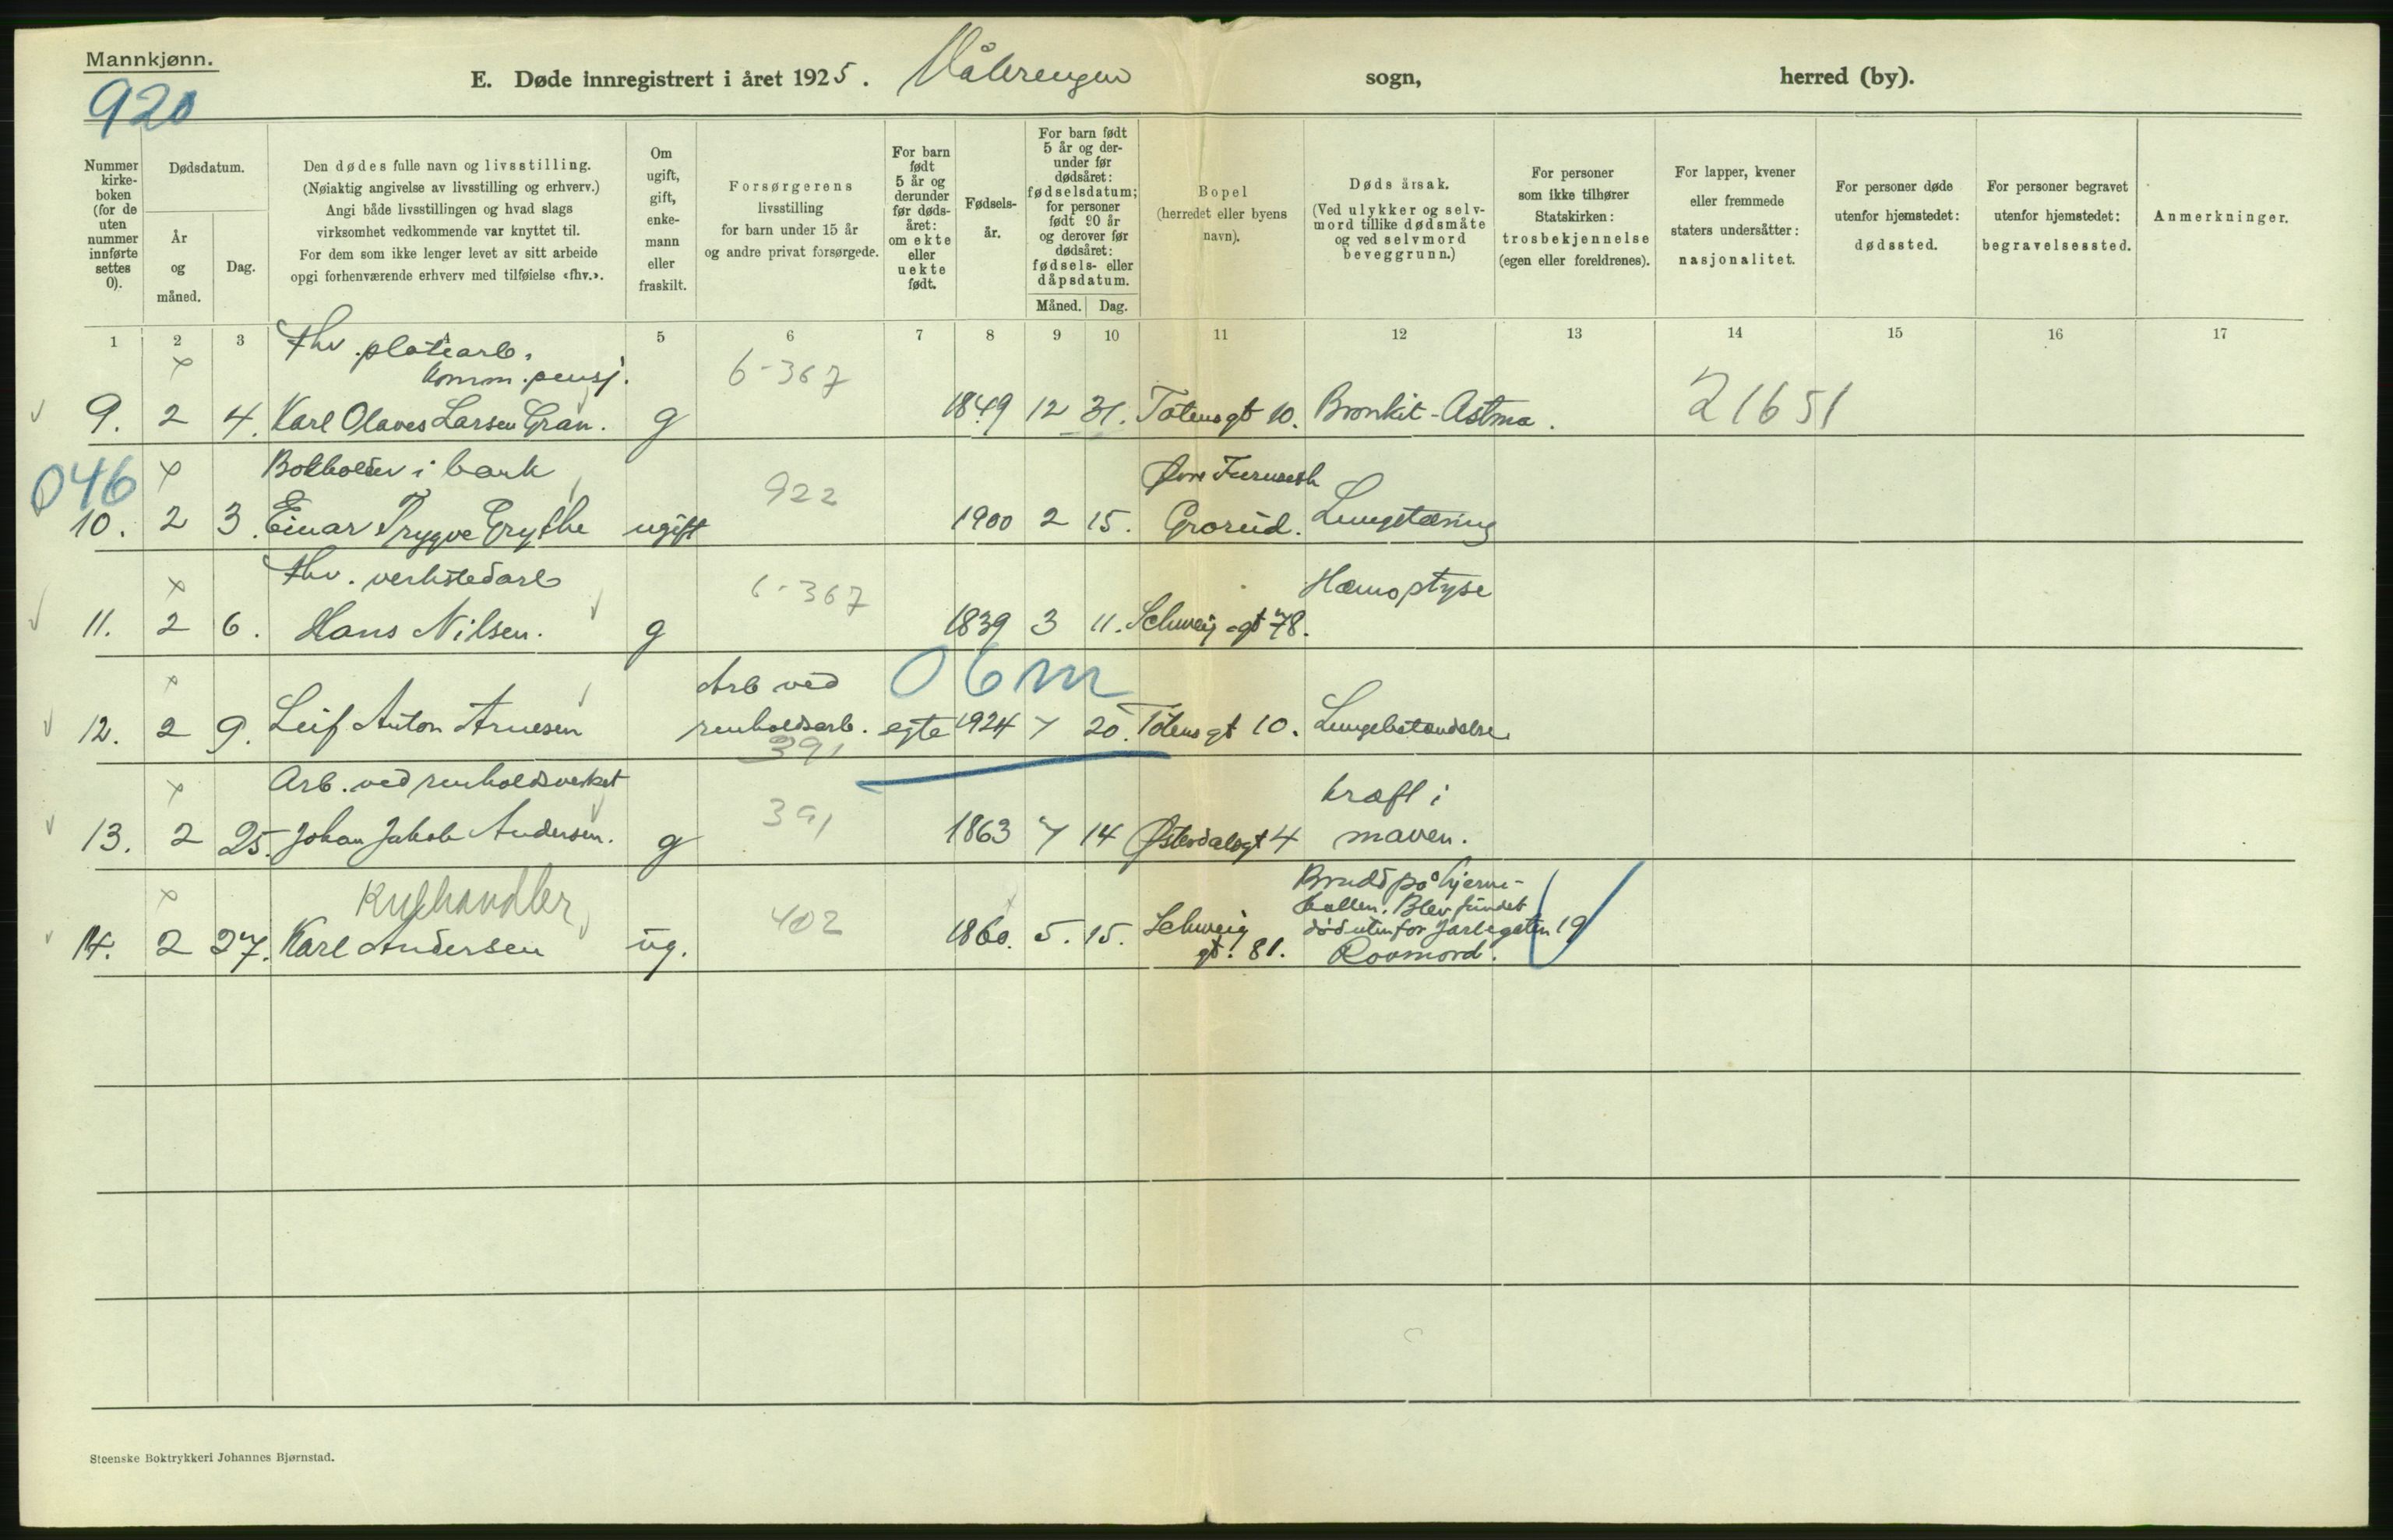 Mannkjønn.
920
E. Døde innregistrert i året 1925. Vålerengen sogn, herred (by).
Nummer kirke-boken (for de uten nummer innførte settes 0).
Dødsdatum.
År og måned.
Dag.
Den dødes fulle navn og livsstilling.
(Nøiaktig angivelse av livsstilling og erhverv.)
Angi både livsstillingen og hvad slags
virksomhet vedkommende var knyttet til.
For dem som ikke lenger levet av sitt arbeide
opgi forhenværende erhverv med tilføielse «fhv.».
Om ugift, gift, enke-mann eller fraskilt.
Forsørgerens
livsstilling
for barn under 15 år
og andre privat forsørgede.
For barn født 5 år og derunder før døds-året: om ekte eller uekte født.
Fødsels-år.
For barn født 5 år og der-under før dødsåret: fødselsdatum; for personer født 90 år og derover før dødsåret: fødsels- eller dåpsdatum.
Måned.
Dag.
Bopel
(herredet eller byens navn).
Døds årsak.
(Ved ulykker og selv-mord tillike dødsmåte og ved selvmord beveggrunn.)
For personer
som ikke tilhører
Statskirken:
trosbekjennelse
(egen eller foreldrenes).
For lapper, kvener
eller fremmede
staters undersåtter:
nasjonalitet.
For personer døde
utenfor hjemstedet:
dødssted.
For personer begravet
utenfor hjemstedet:
begravelsessted.
Anmerkninger.
1 2 3 5 6 7 8 9 10 11 12 13 14 15 16 17
Fhv. platearb.
komm. pensj.
6-367
9. 2 4. Karl Olaves Larsen Gran. g 1849 12 31. Totensgt 10. Bronkit-Astma. 21651
046
Bokholder i bank
922
Øvre Furuseth
10. 2 3. Einar Trygve Grythe ugift 1900 2 15. Grorud. Lungetæring
Fhv. verkstedarb
6-367
Hæmoptyse
11. 2 6. Hans Nilsen. g 1839 3 11. Schweig.gt 78.
Arb ved 06m
12. 2 9. Leif Anton Arnesen renholdsarb. egte 1924 7 20. Totensgt 10. Lungebetændelse
391
Arb. ved renholdsverket
391
kræft i
13. 2 25. Johan Jakob Andersen. g 1863 7 14 Østerdalsgt 4 maven.
Kulhandler
402
Brudd på hjerne-
skallen. Blev fundet
død utenfor Jarlegaten 19
14. 2 27. Karl Andersen ug. 1860. 5. 15. Schweig
gt. 81. Rovmord.
Steenske Boktrykkeri Johannes Bjørnstad.